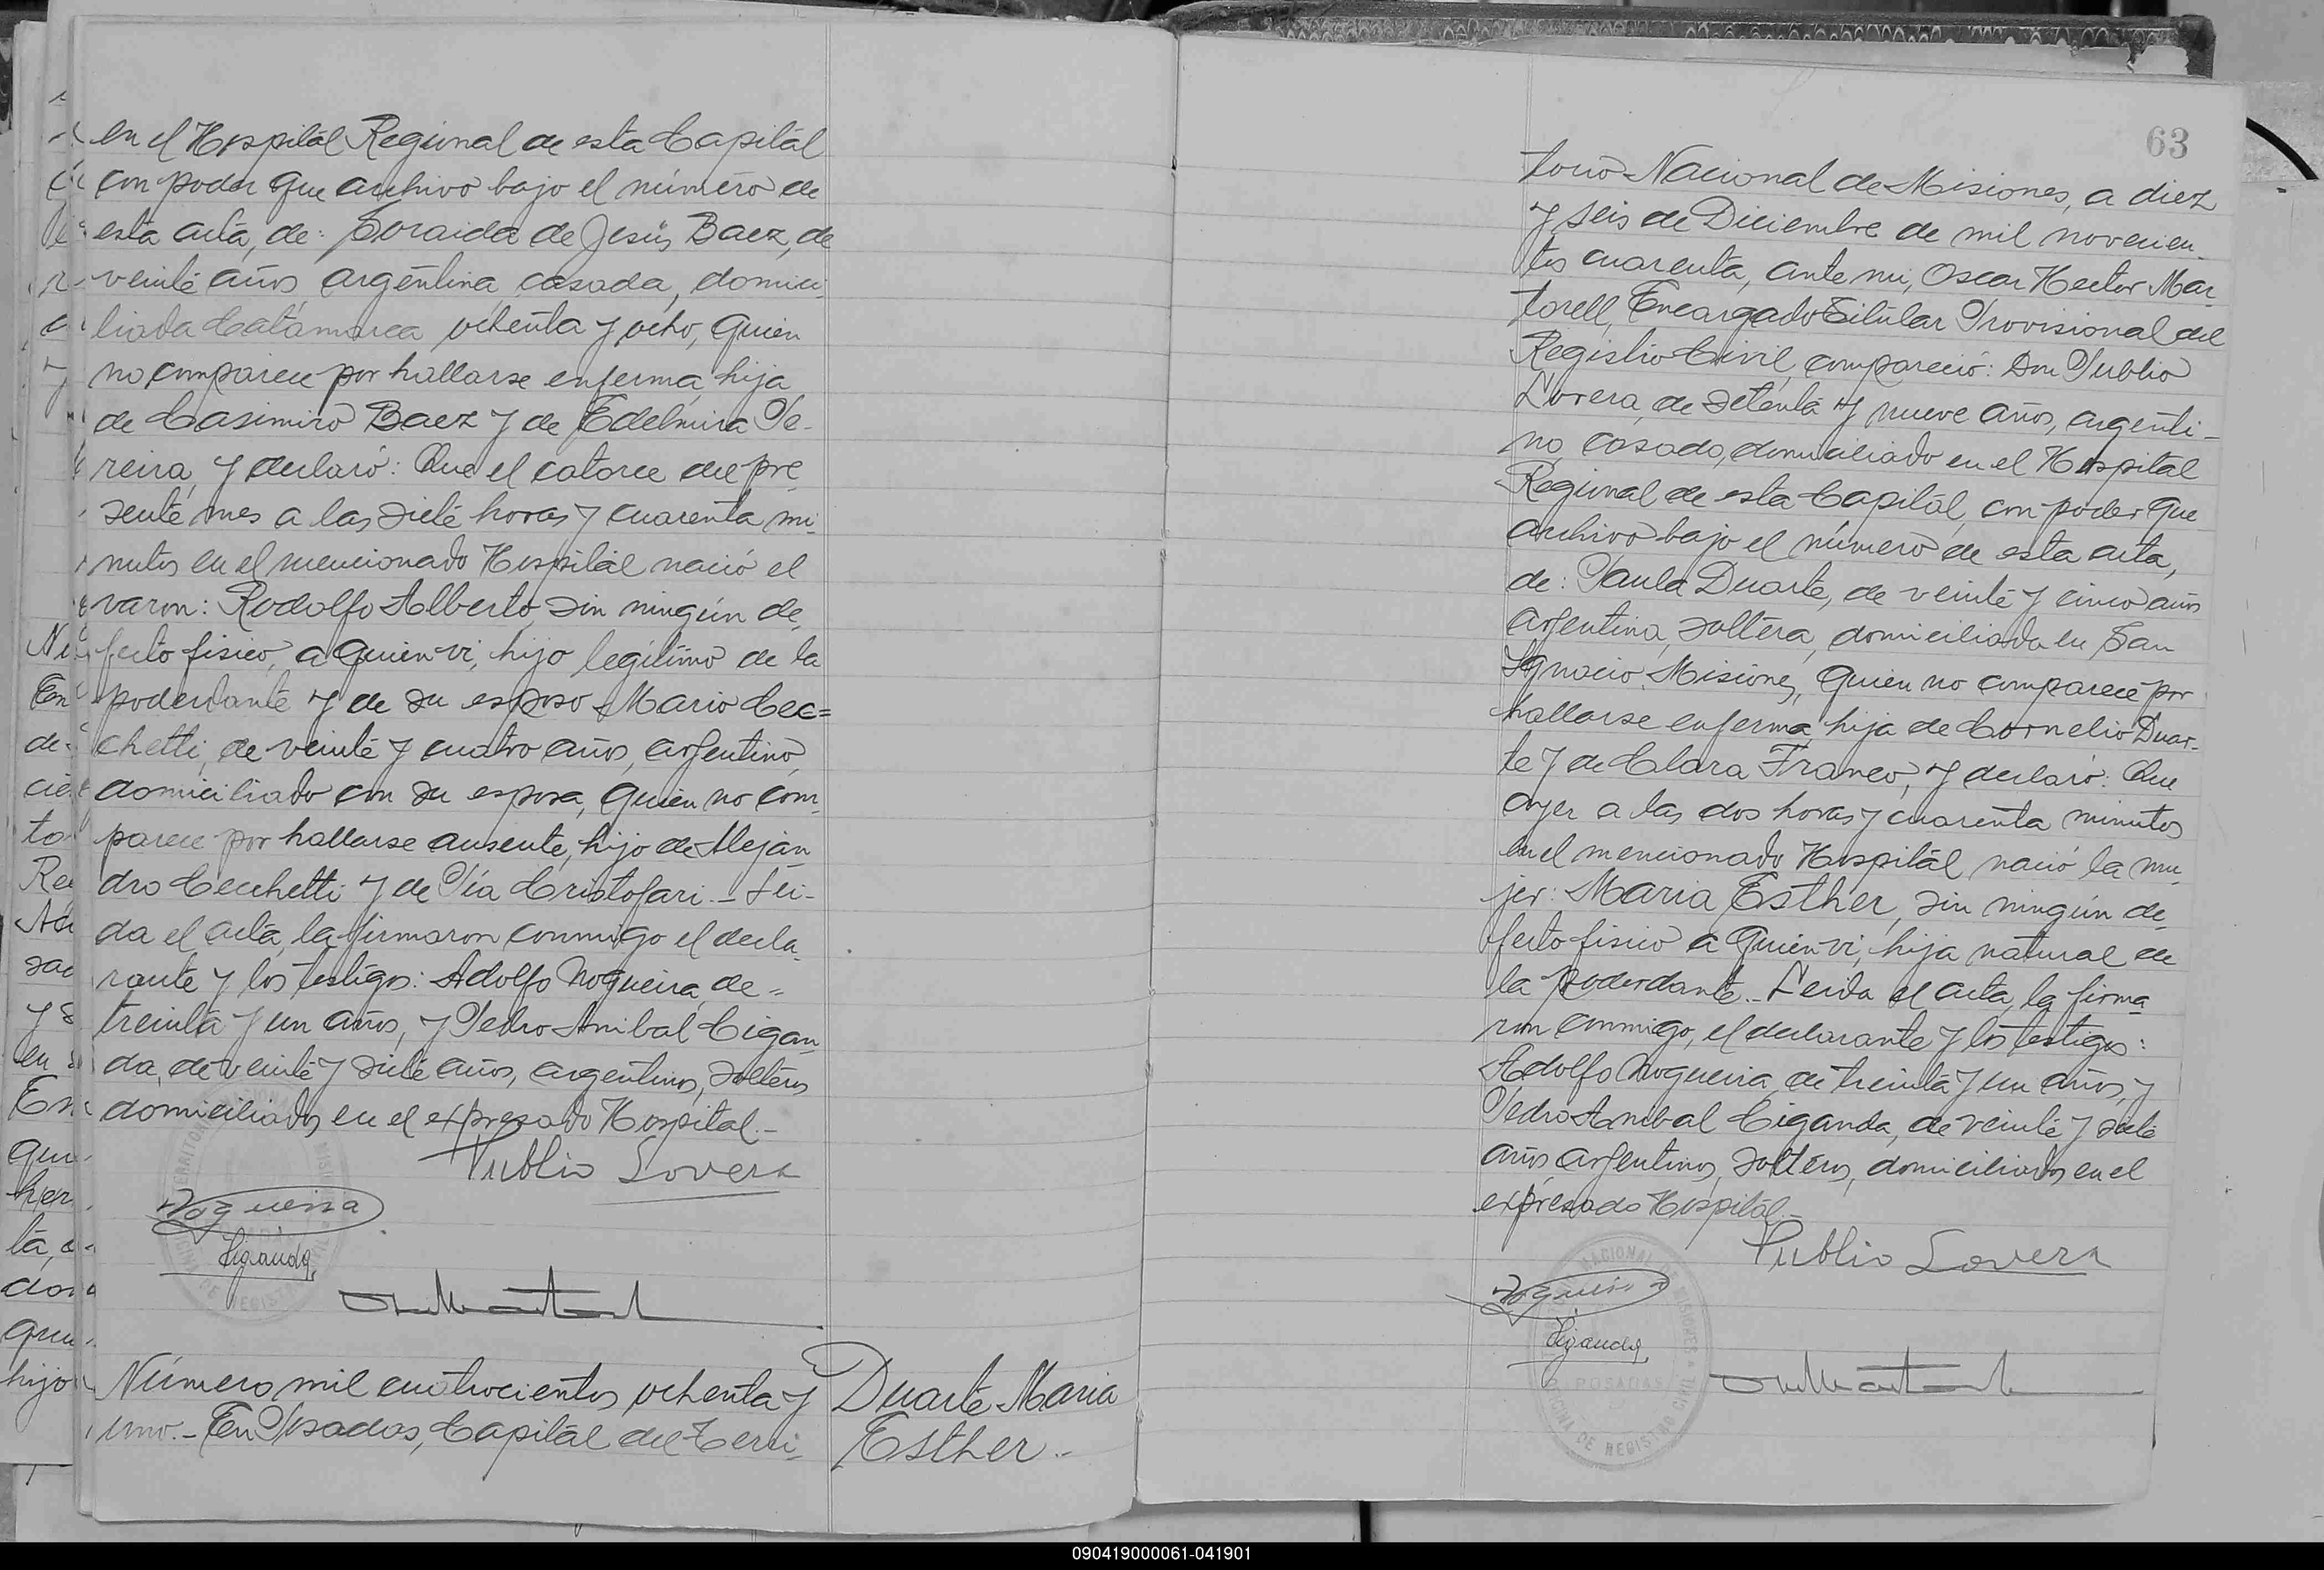 en el Hospital Regional de esta Capital
con poder que archivo bajo el número de
esta acta, de: Soraida de Jesús Baez, de
veinte años argentina casada, domici-
liada Catamarca ochenta y ocho, quien
no comparece por hallarse enferma, hija
de Casimiro Baez y de Edelmira Pe-
reira, y declaró: Que el catorce del pre
sente mes a las siete horas y cuarenta mi-
nutos en el mencionado Hospital nació el
varon: Rodolfo Alberto, sin ningún de-
fecto fisico, a quien vi, hijo legitimo de la
poderdante y de su esposo Mario Cec=
chetti, de veinte y cuatro años, argentino,
domiciliado con su esposa, quien no com-
parece por hallarse ausente, hijo de Alejan
dro Cecchetti y de Pía Cristofari. - Lei-
da el acta, la firmaron conmigo el decla-
rante y los testigos: Adolfo Nogueira, de-
treinta y un años, y Pedro Anibal Cigan-
da, de veinte y siete años, argentinos, solteros
domiciliados en el expresado Hospital. -
Publio Lovera
Nogueira
Ciganda
Número mil cuatrocientos ochenta y
uno. - En Posadas, Capital del Terri-
Duarte Maria
Esther. -
63
torio Nacional de Misiones, a diez
y seis de Diciembre de mil novecien-
tos cuarenta, ante mi, Oscar Hector Mar-
torell, Encargado Titular Provisional del
Registro Civil, compareció: Don Publio
Lovera, de setenta y nueve años, argenti-
no, casado, domiciliado en el Hospital
Regional de esta Capital, con poder que
archivo bajo el número de esta acta,
de: Paula Duarte, de veinte y cinco años
argentina, soltera, domiciliada en San
Ignacio Misiones, quien no comparece por
hallarse enferma, hija de Cornelio Duar-
te y de Clara Franco, y declaró: Que
ayer a las dos horas y cuarenta minutos
en el mencionado Hospital nació la mu-
jer: Maria Esther, sin ningún de-
fecto fisico a quien vi, hija natural de
la poderdante. - Leida el acta, la firma
ron conmigo, el declarante y los testigos:
Adolfo Nogueira, de treinta y un años, y
Pedro Anibal Ciganda, de veinte y siete
años argentinos, solteros, domiciliados en el
expresado Hospital. -
Publio Lovera
Nogueira
Ciganda
NACIONAL DE MISIONES
POSADAS
OFICINA DE REGISTRO CIVIL
090419000061-041901